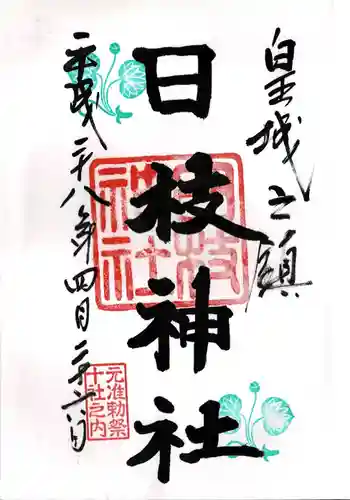 皇城之鎮
日枝神社
平成二十八年四月二十六日
日枝神社
元准勅祭
十社之内